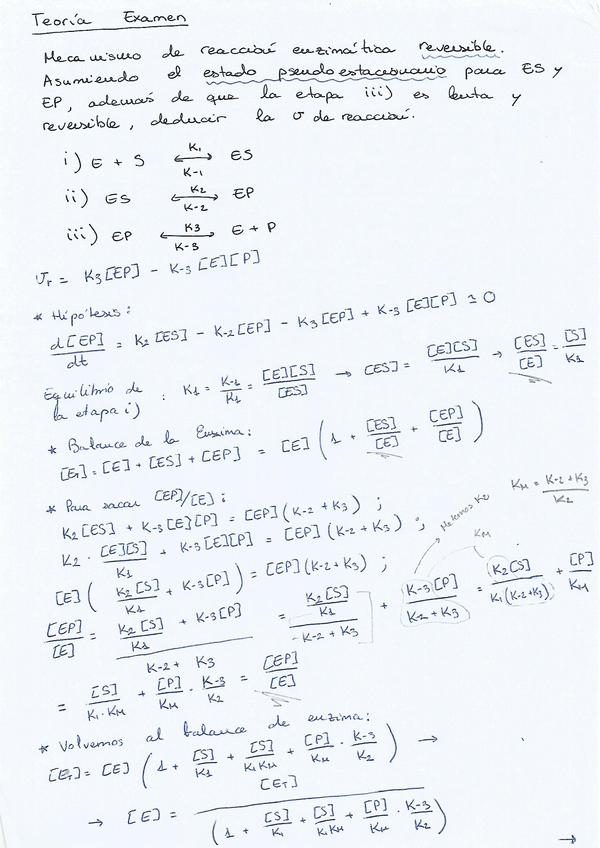 Teoría Examen
Mecanismo de reacción enzimática reversible.
Asumiendo el estado pseudoestacionario para ES y
EP, además de que la etapa iii) es lenta y
reversible, deducir la v de reacción.
i) E + S ⟷ ES K1 K-1
ii) ES ⟷ EP K2 K-2
iii) EP ⟷ E + P K3 K-3
Vr = K3[EP] - K-3[E][P]
* Hipótesis:
d[EP]/dt = K2[ES] - K-2[EP] - K3[EP] + K-3[E][P] ≃ 0
Equilibrio de
la etapa i) : K1 = K-1/K1 = [E][S]/[ES] → [ES] = [E][S]/K1 → [ES]/[E] = [S]/K1
* Balance de la Enzima:
[ET] = [E] + [ES] + [EP] = [E] (1 + [ES]/[E] + [EP]/[E])
* Para sacar [EP]/[E]: KM = K-2 + K3/K2
K2[ES] + K-3[E][P] = [EP](K-2 + K3) ;
K2 · [E][S]/K1 + K-3[E][P] = [EP](K-2 + K3) ; Metemos K2
[E] (K2[S]/K1 + K-3[P]) = [EP](K-2 + K3) ; KM
[EP]/[E] = K2[S]/K1 + K-3[P] / K-2 + K3 = K2[S]/K1 / K-2 + K3 + K-3[P]/K-2 + K3 = K2[S]/K1(K-2 + K3) + [P]/KM
= [S]/K1·KM + [P]/KM · K-3/K2 = [EP]/[E]
* Volvemos al balance de enzima:
[ET] = [E] (1 + [S]/K1 + [S]/K1KM + [P]/KM · K-3/K2) →
→ [E] = [ET] / (1 + [S]/K1 + [S]/K1KM + [P]/KM · K-3/K2)
→